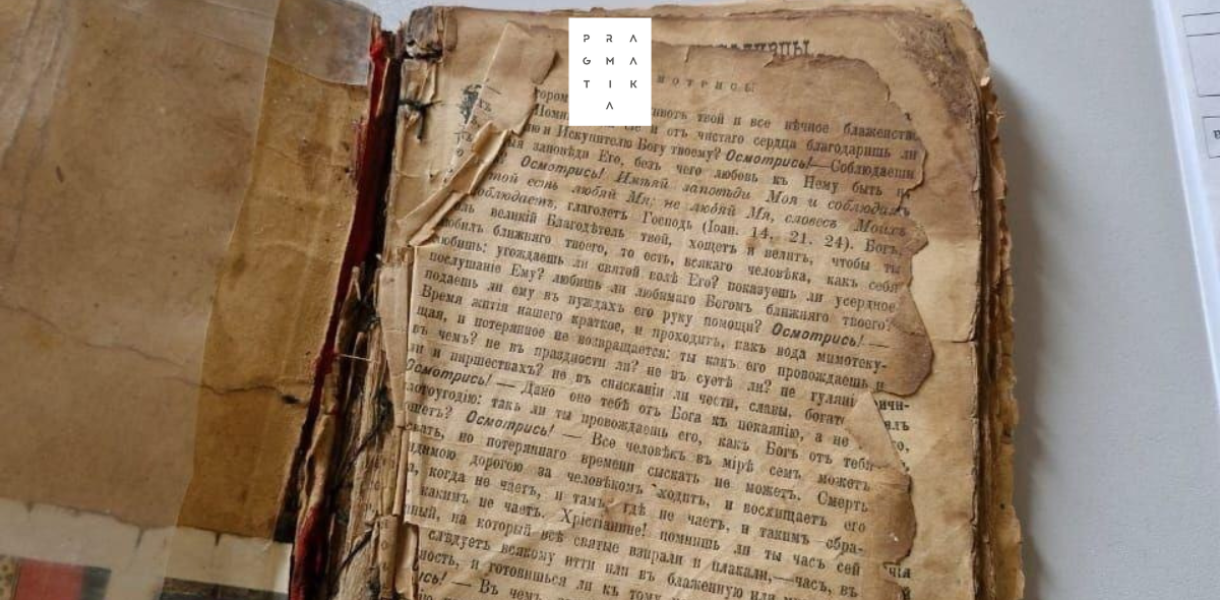 PRA
GMA
TIK
A
ОТРИСЬ
животъ твой и все вѣчное блаженств
и отъ чистаго сердца благодаришь ли
ю и Искупителю Богу твоему? Осмотрись!—Соблюдаеши
заповѣда Его, безъ чего любовь къ Нему быть н
Осмотрись! Имѣяй заповѣди Моя и соблюдаяй
той есть любяй Мя; не любяй Мя, словесъ Моихъ
соблюдаетъ, глаголетъ Господь (Іоан. 14, 21. 24). Богъ,
ль великій Благодѣтель твой, хощетъ и велитъ, чтобы ты
юбилъ ближняго твоего, то есть, всякаго человѣка, какъ себя
юбишь; угождаешь ли святой волѣ Его? показуешь ли усердное
послушаніе Ему? любишь ли любимаго Богомъ ближняго твоего?
подаешь ли ему въ нуждахъ его руку помощи? Осмотрись! —
Время житія нашего краткое, и проходитъ, какъ вода мимотеку-
щая, и потерянное не возвращается: ты какъ его провождаешь и
въ чемъ? не въ праздности ли? не въ суетѣ ли? не гуляні
ли и пиршествахъ? не въ снисканіи ли чести, славы, богат
Осмотрись! — Дано оно тебѣ отъ Бога къ покаянію, а не
лотоугодію: такъ ли ты провождаешь его, какъ Богъ отъ тебя
щетъ? Осмотрись! — Все человѣкъ въ мірѣ семъ можетъ
скать, но потеряннаго времени сыскать не можетъ. Смерть
димою дорогою за человѣкомъ ходитъ, и восхищаетъ его
а, когда не чаетъ, и тамъ, гдѣ не чаетъ, и такимъ обра-
какимъ не чаетъ. Христіанине! помнишь ли ты часъ сей
ный, на который всѣ святые взирали и плакали,—часъ, въ
слѣдуетъ всякому итти или въ блаженную или
ность, и готовишься ли къ тому
ись! — Въ чемъ